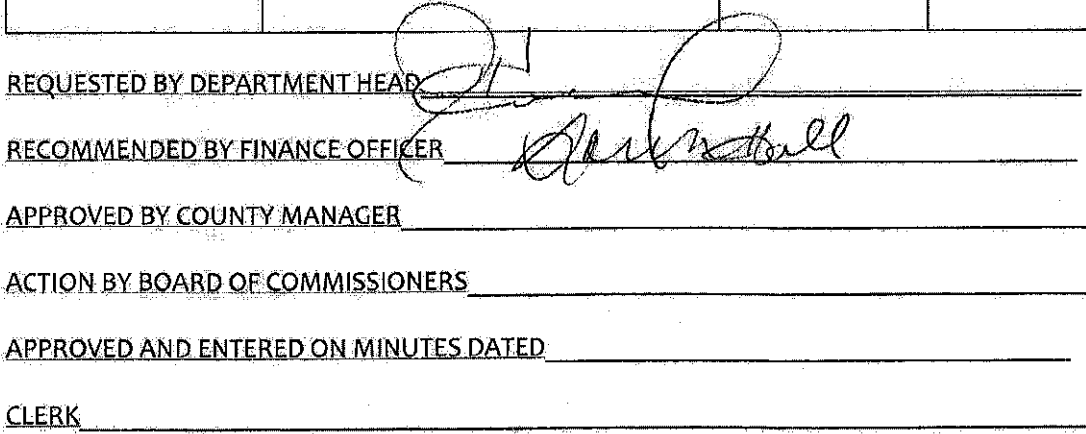 REQUESTED BY DEPARTMENT HEAD
RECOMMENDED BY FINANCE OFFICER
APPROVED BY COUNTY MANAGER
ACTION BY BOARD OF COMMISSIONERS
APPROVED AND ENTERED ON MINUTES DATED
CLERK